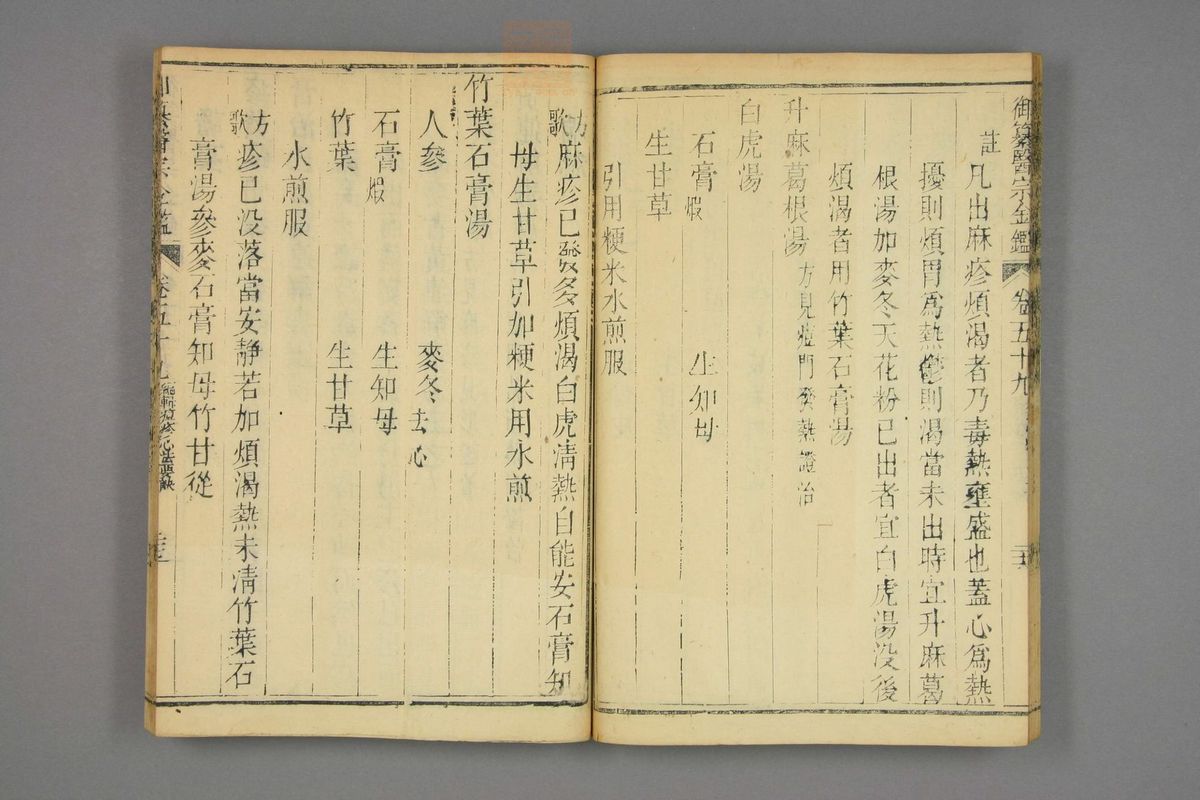 御纂醫宗金鑑 卷五十九
註 凡出麻疹煩渴者乃毒熱壅盛也蓋心爲熱
擾則煩胃爲熱鬱則渴當未出時宜升麻葛
根湯加麥冬天花粉已出者宜白虎湯沒後
煩渴者用竹葉石膏湯
升麻葛根湯 方見痘門發熱證治
白虎湯
石膏煆 生知母
生甘草
引用粳米水煎服
方歌 麻疹已發多煩渴白虎清熱自能安石膏知
母生甘草引加粳米用水煎
竹葉石膏湯
人參 麥冬去心
石膏煆 生知母
竹葉 生甘草
水煎服
方歌 疹已没落當安靜若加煩渴熱未清竹葉石
膏湯參麥石膏知母竹甘從
醫宗金鑑 卷五十九